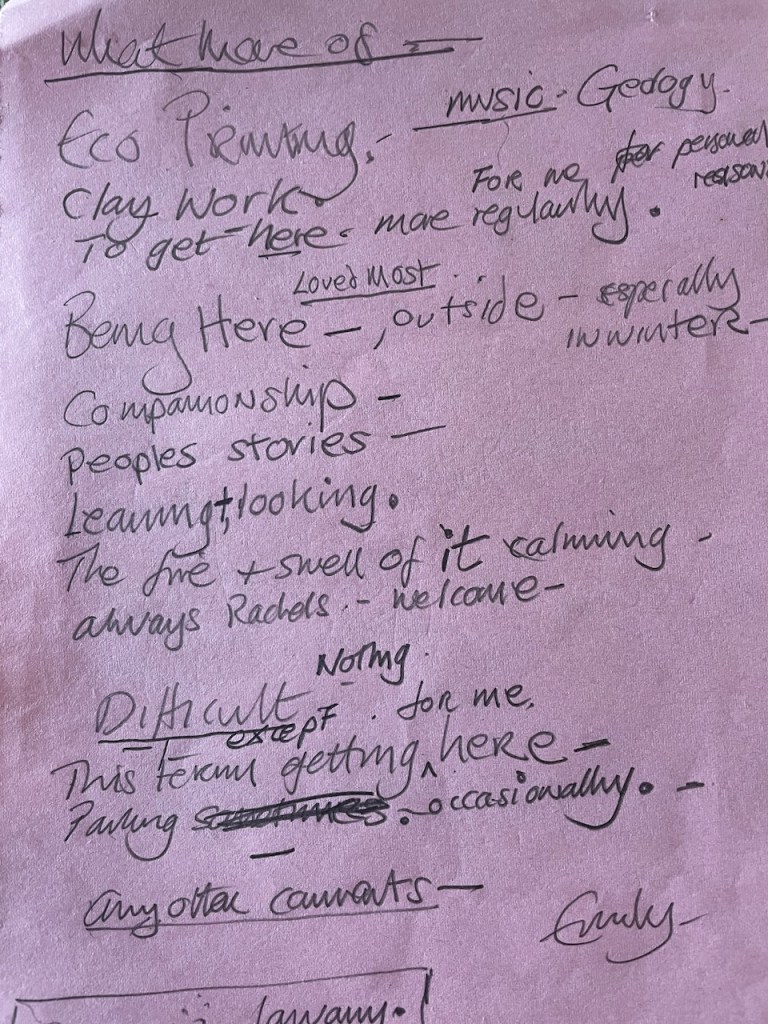 What more of =
Eco Printing, - music - Geology.
Clay Work
For me for personal reasons
To get here - more regularly.
Loved Most
Being Here -, outside - especially
in winter -
Companionship -
Peoples stories -
Learning + looking.
The fire + smell of it calming -
always Rachels. - welcome -
Nothing.
Difficult . for me,
except
This term getting ^ here -
Parking . occasionally. -
Any other comments -
Emily